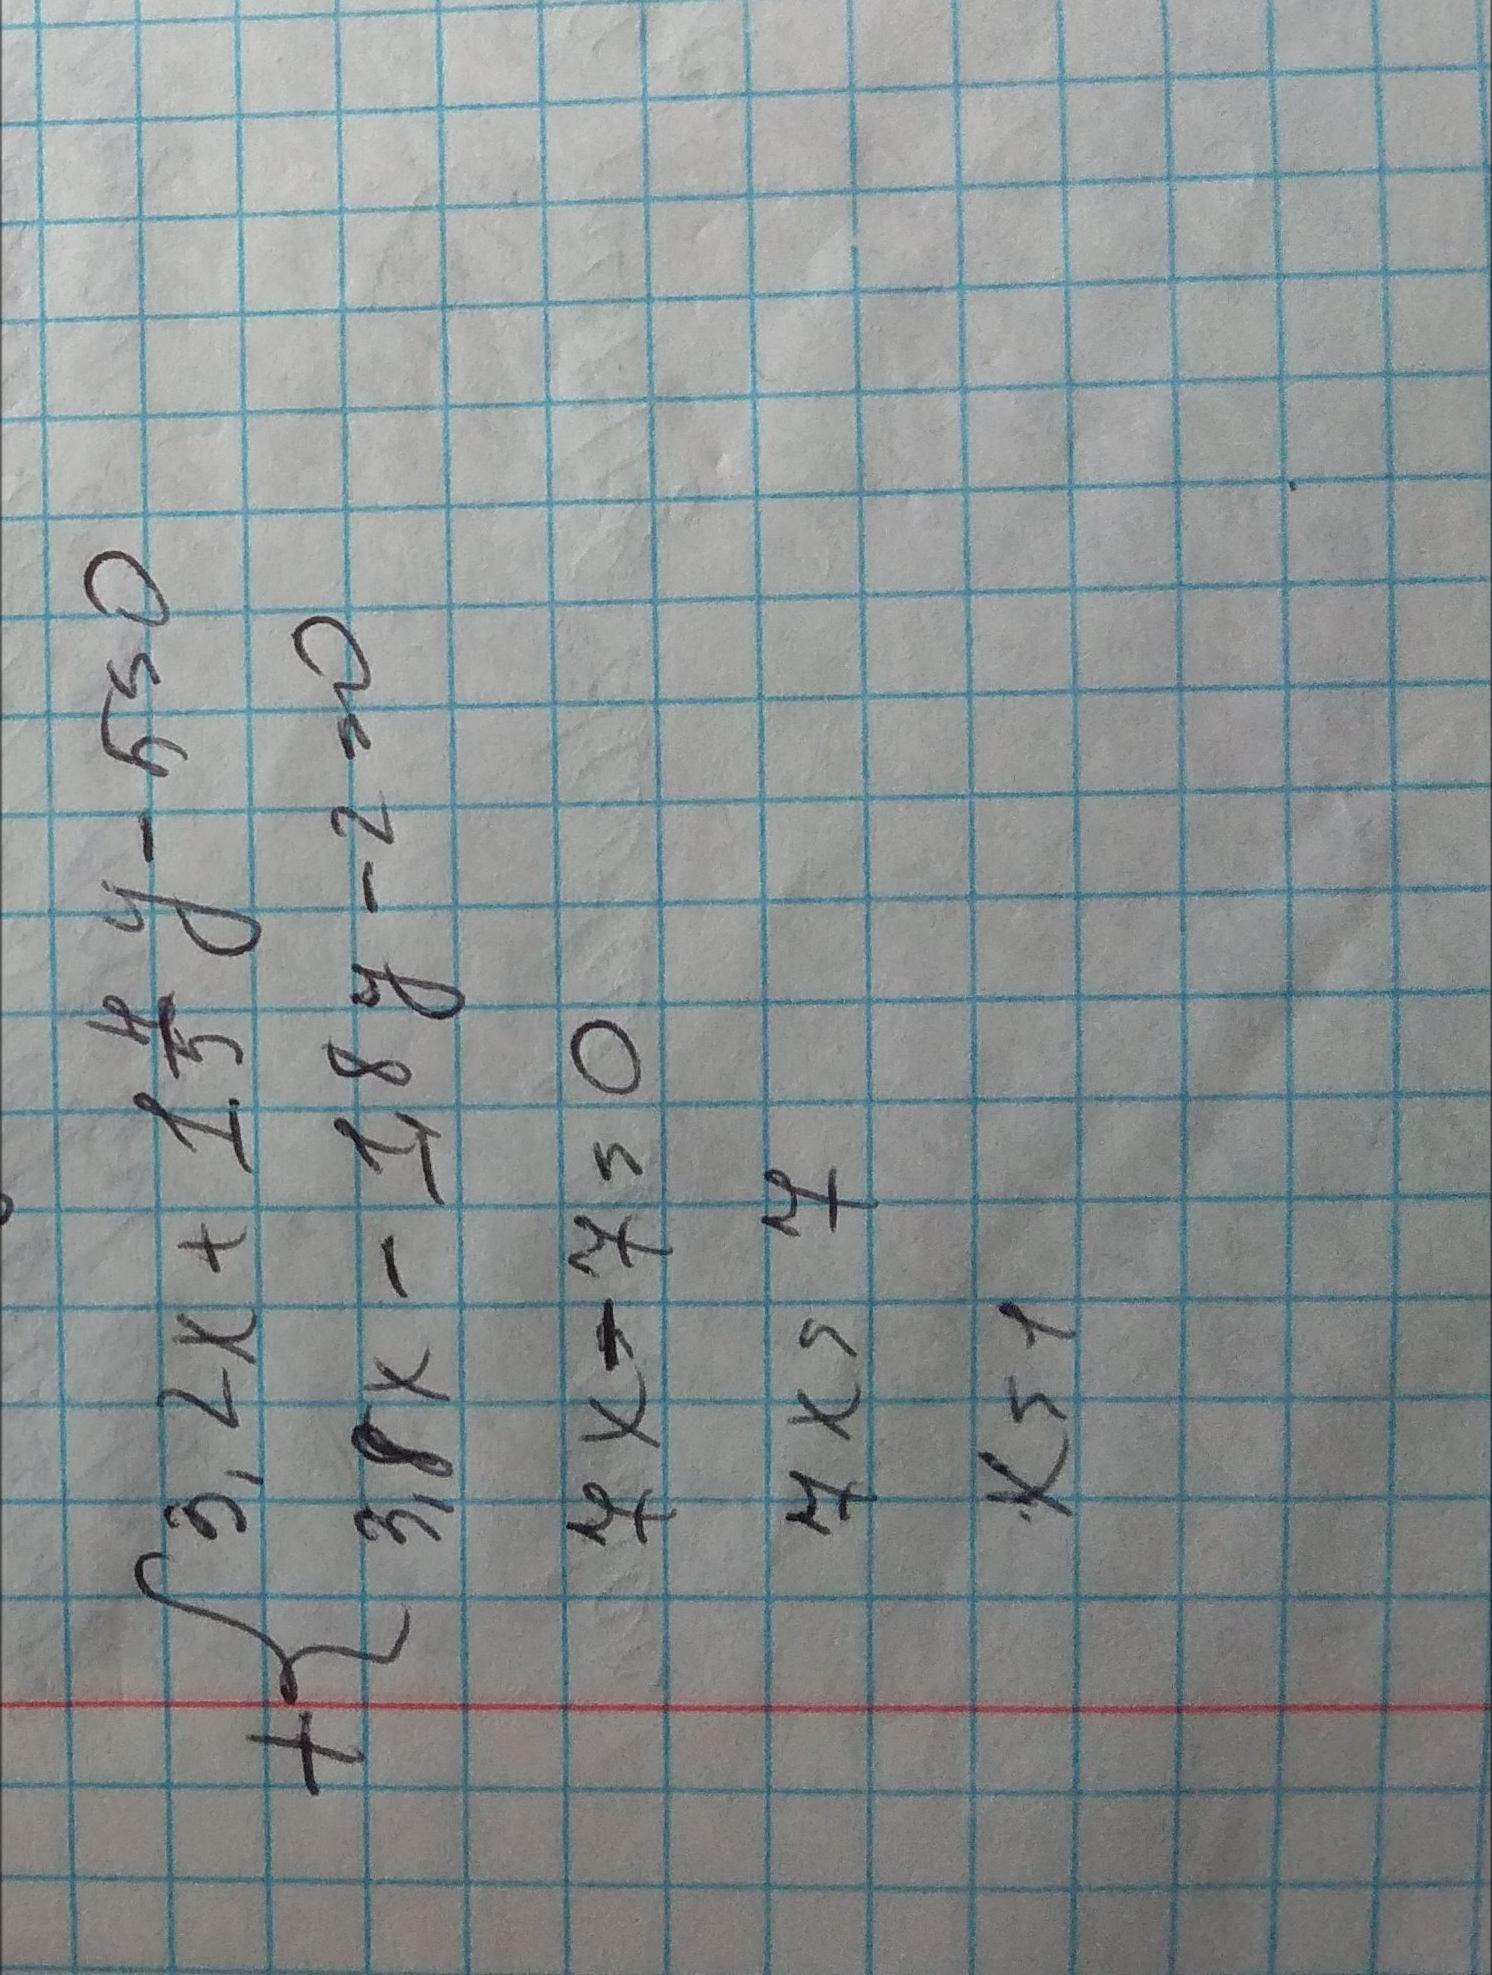 3,2x + 1 4/5 y - 5 = 0
+ {
3,8x - 1,8y - 2 = 0
7x - 7 = 0
7x = 7
x = 1